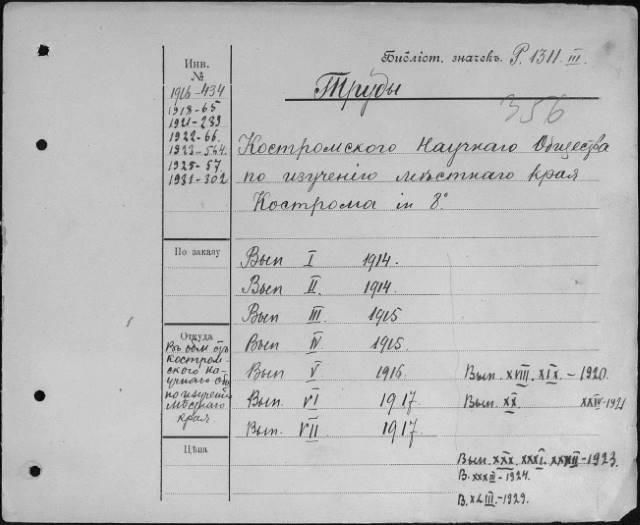 Библіот. значекъ. P. 1311. III.
Инв.
№
1916-434
1918-65
1921-289
1922-66.
1923-564.
1925-57.
1931-302
Труды
356
Костромского Научнаго Общества
по изученію мѣстнаго края
Кострома in 8°
По заказу
Вып I 1914.
Вып II. 1914.
Вып III. 1915
Вып IV 1915.
Вып V 1916
Вып. VI 1917.
Вып. VII 1917.
Вып. XVIII. XIX. - 1920.
Вып. XX. XXIV-1921
Откуда
Въ обм. отъ
Костром-
ского На-
учнаго Общ
по изученію
мѣстнаго
края
Цѣна
Вып. XXX. XXXI. XXXII-1923.
В. XXXIII-1924.
В. XLIII.-1929.